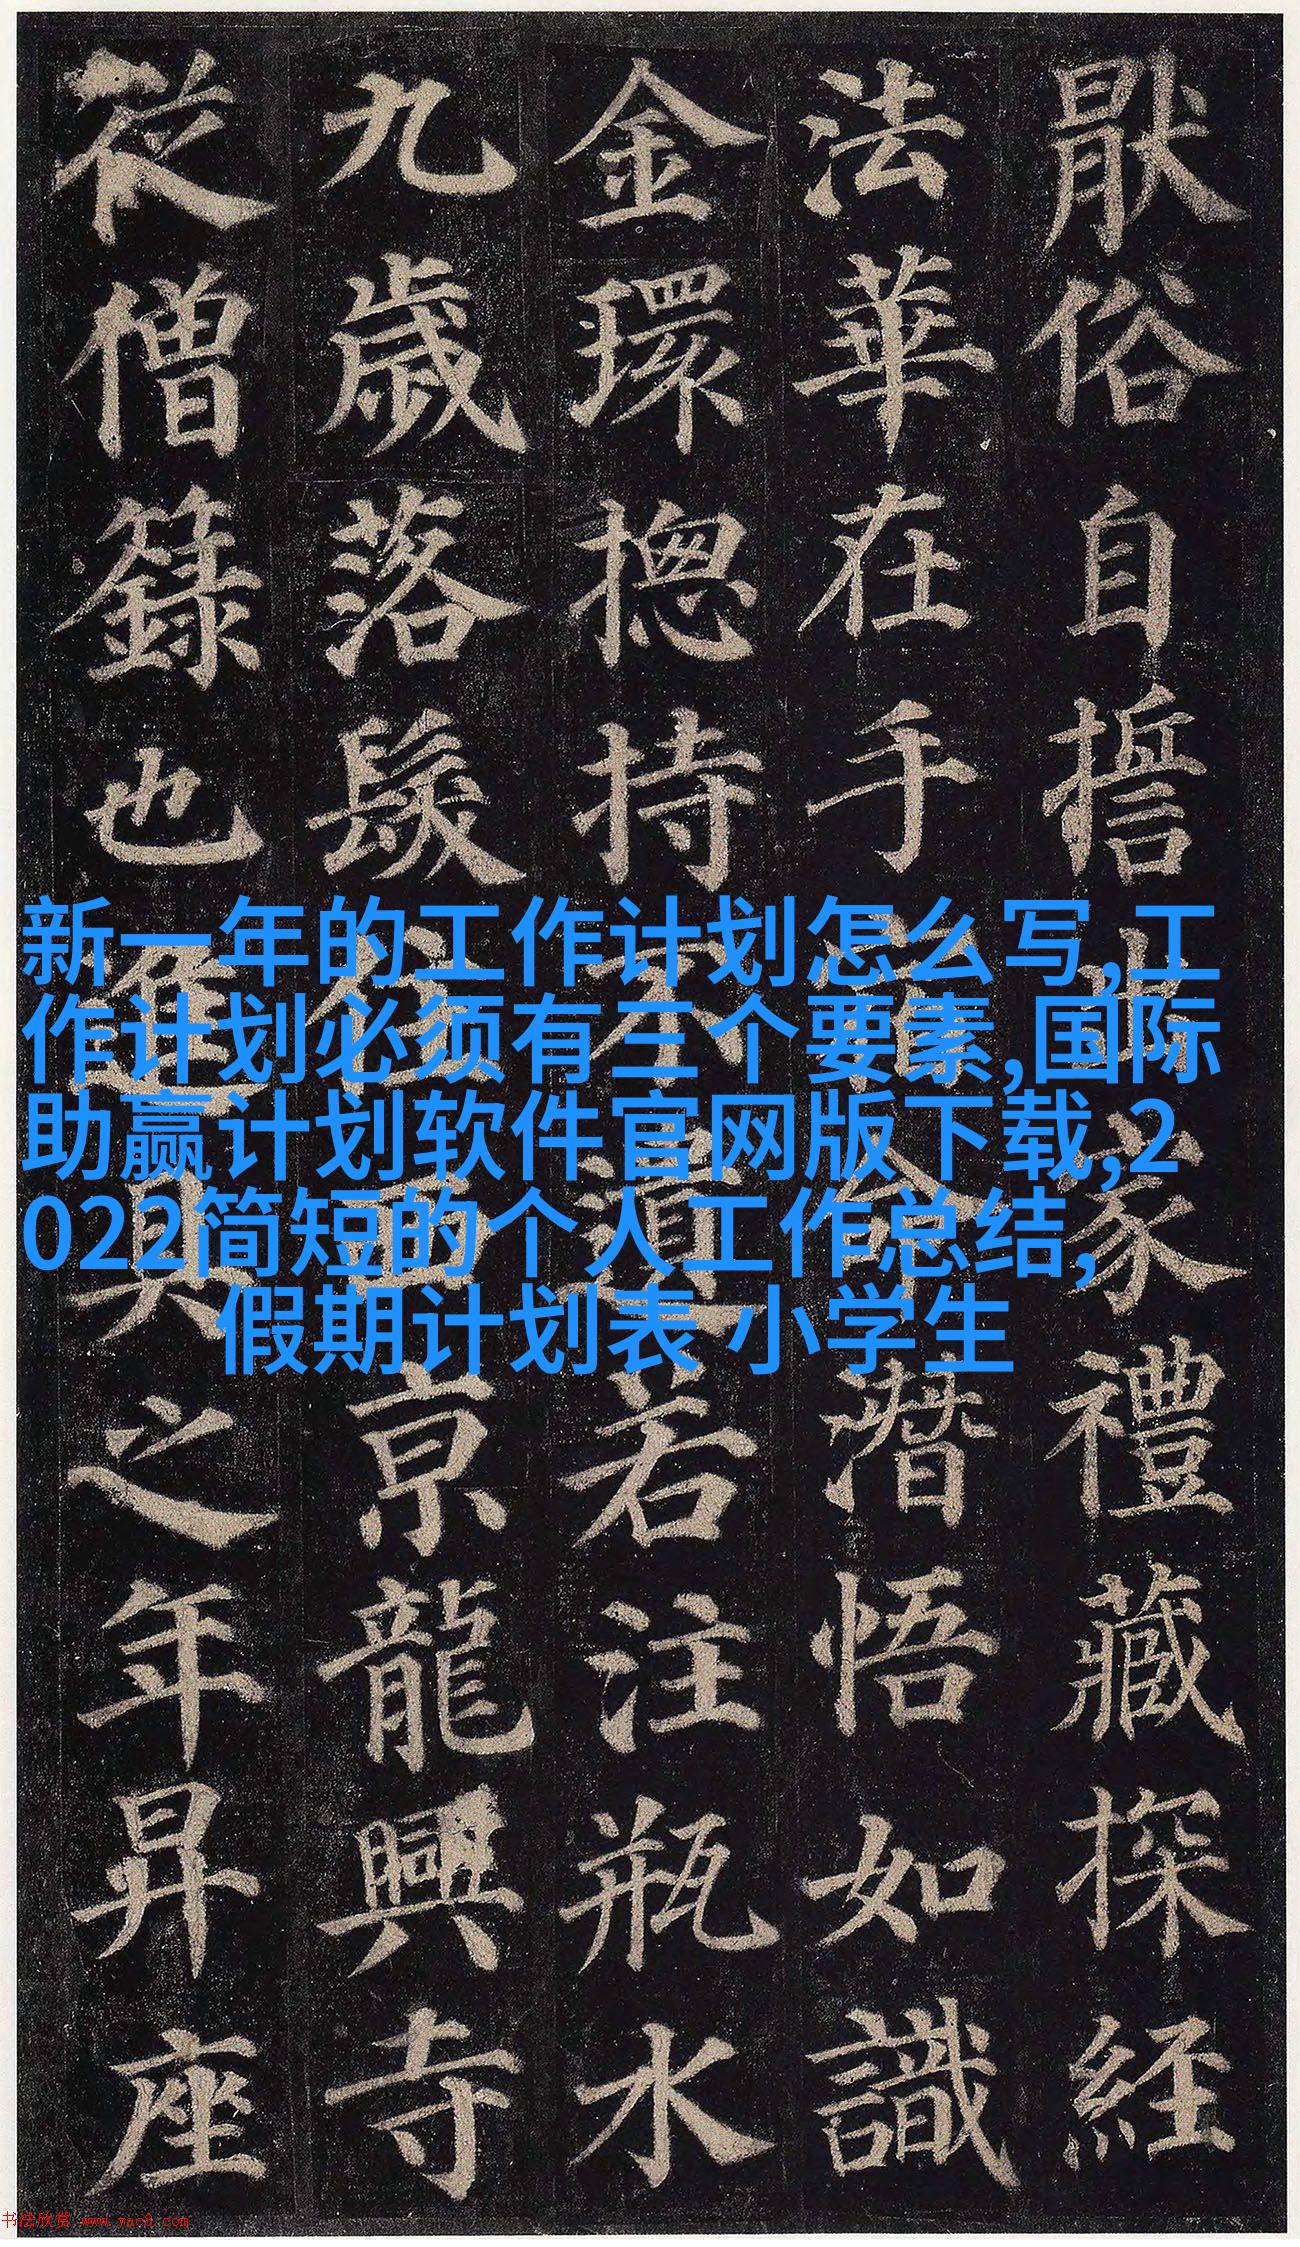 猒俗自誓出家禮藏探經
法華在手宿命潛悟如識
金環揔持不遺若注瓶水
九歲落髮住西京龍興寺
從僧籙也進具之年昇座
新一年的工作计划怎么写,工
作计划必须有三个要素,国际
助赢计划软件官网版下载,2
022简短的个人工作总结,
假期计划表 小学生
书法欣赏 www.yac8.com